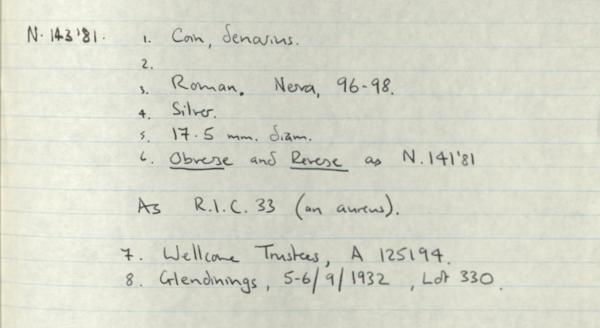 N. 143'81. 1. Coin, denarius.
2.
3. Roman. Nerva, 96-98.
4. Silver.
5. 17.5 mm. diam.
6. Obverse and Reverse as N.141'81
As R.I.C. 33 (an aureus).
7. Wellcome Trustees, A 125194.
8. Glendinings, 5-6/9/1932, Lot 330.